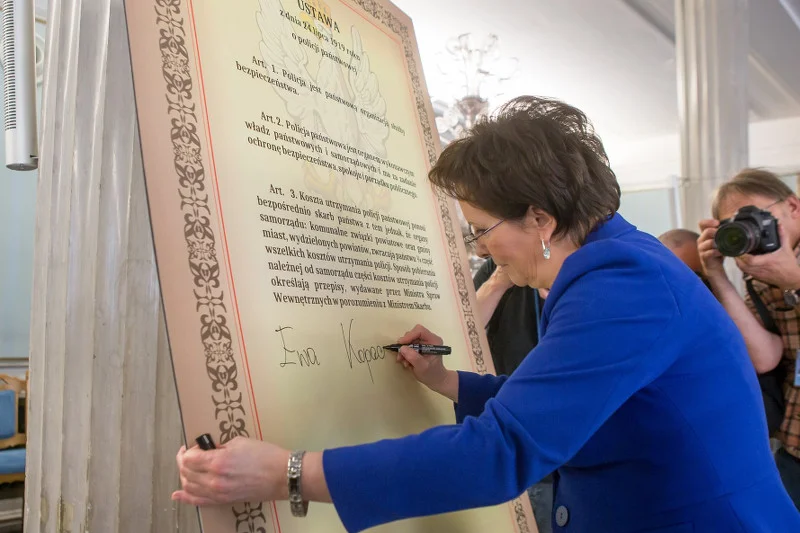 USTAWA
z dnia 24 lipca 1919 roku
o policji państwowej
Art. 1. Policja jest państwową organizacją służby
bezpieczeństwa.
Art. 2. Policja państwowa jest organem wykonawczym
władz państwowych i samorządowych i ma za zadanie
ochronę bezpieczeństwa, spokoju i porządku publicznego.
Art. 3. Koszta utrzymania policji państwowej ponosi
bezpośrednio skarb państwa z tem jednak, że organy
samorządu: komunalne związki powiatowe oraz gminy
miast, wydzielonych powiatów, zwracają państwu ¼ część
wszelkich kosztów utrzymania policji. Sposób pobierania
należnej od samorządu części kosztów utrzymania policji
określają przepisy, wydawane przez Ministra Spraw
Wewnętrznych w porozumieniu z Ministrem Skarbu.
Ewa Kopac